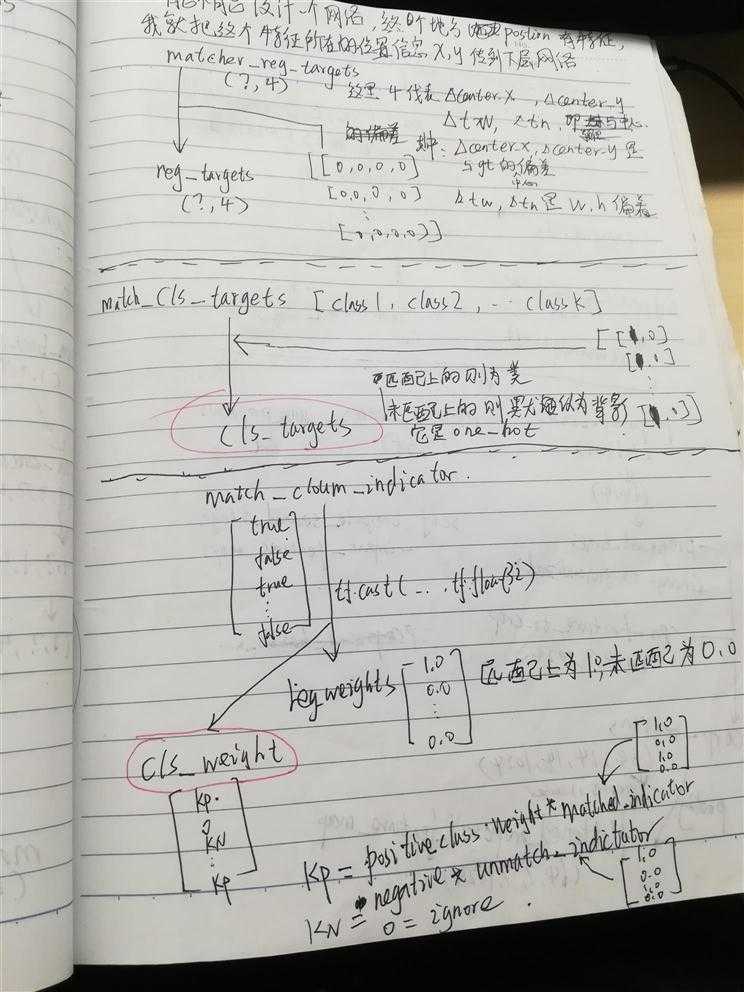 能不能自己设计一个网络,终0个地方 postion 有特征,
我就把这个特征所在的位置信息 x,y 传到下层网络
matcher_reg_targets
(?,4)
这里 4 代表 Δcenter.x , Δcenter_y
Δtw, Δth,
其中: Δcenter.x, Δcenter.y 是
与gt的偏差
中心
Δtw, Δth 是 w.h 偏差
[[0,0,0,0]
[0,0,0,0]
⋮
[0,0,0,0]]
reg_targets
(?,4)
match_cls_targets [class1, class2, ... classk]
[[1,0]
[0,1]
⋮
[0,1]]
匹配上的则为类
未匹配上的则默认为背景
它是one_hot
cls_targets
match_cloum_indicator.
[true
false
true
⋮
false]
tf.cast(... tf.float32)
reg weights [1.0
0.0
⋮
0.0]
匹配上为1.0,未匹配为0.0
cls_weight
[kp.
0
kN
⋮
kp]
[1.0
0.0
1.0
0.0]
Kp = positive class.weight * matched_indicator
KN = negative * unmatch_indictator
0 = ignore.
[1.0
0.0
1.0
0.0]